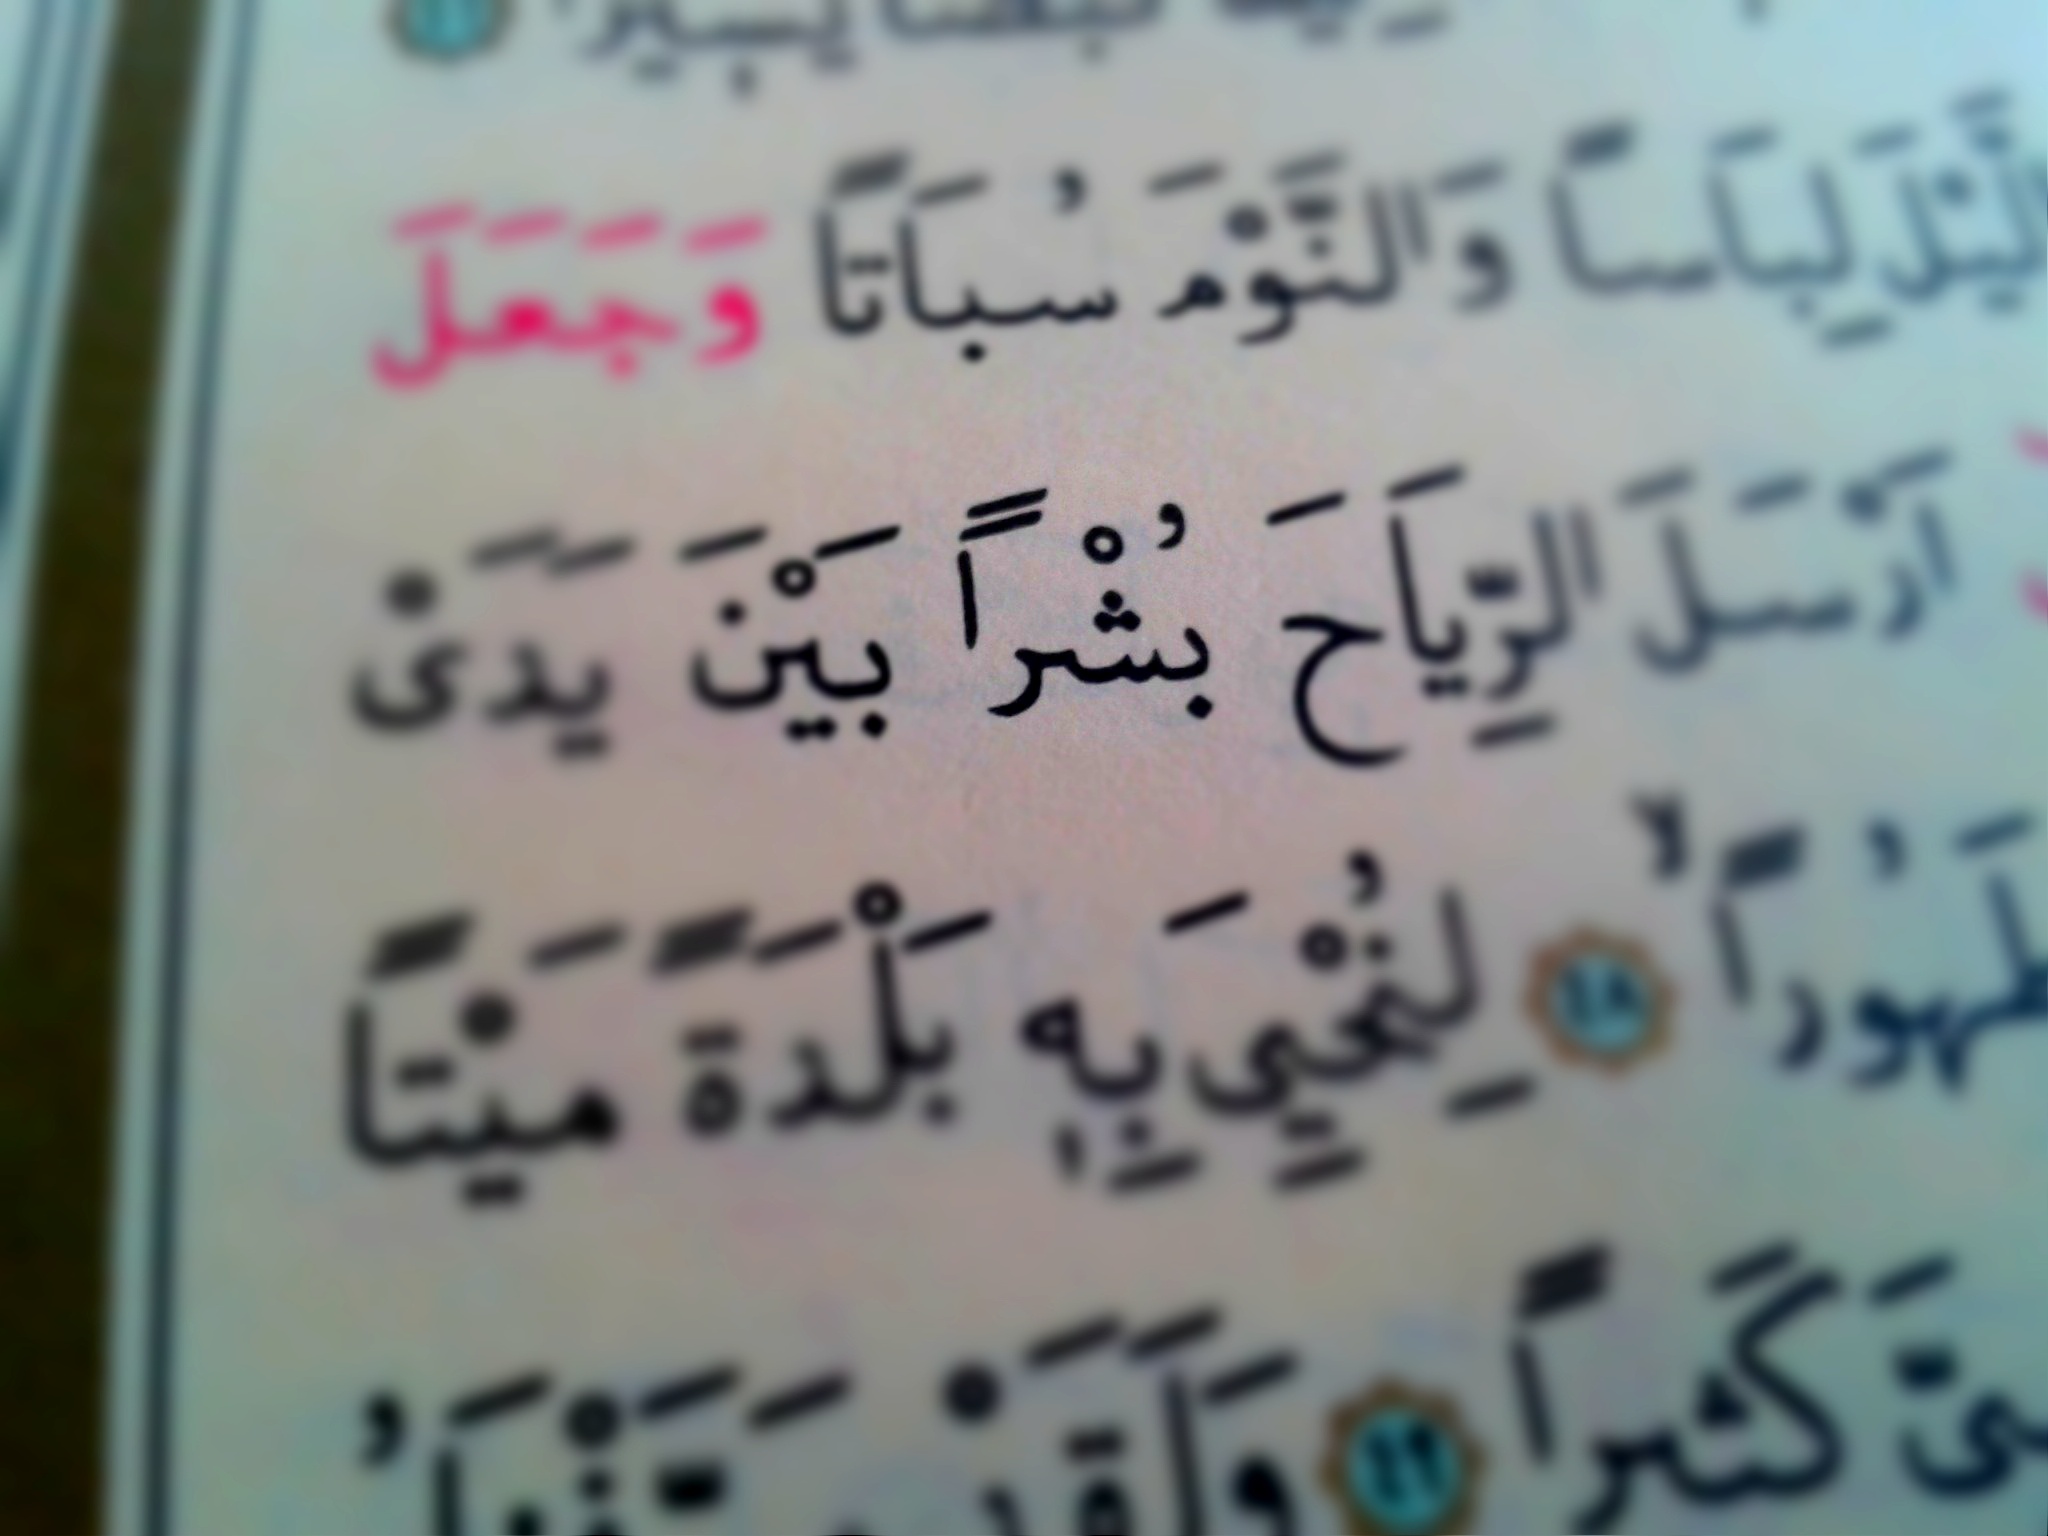 لِبَاسًا وَالنَّوْمَ سُبَاتًا وَجَعَلَ
اَرْسَلَ الرِّيَاحَ بُشْرًا بَيْنَ يَدَىْ
طَهُورًاۙ ٤٨ لِنُحْيِيَ بِهٖ بَلْدَةً مَيْتًا
كَثٖيرًا ٤٩ وَلَقَدْ